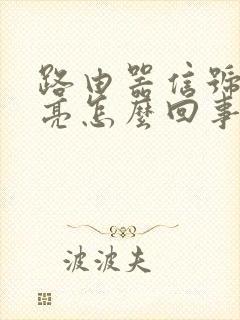 路由器信號
亮怎麼回事
波波夫